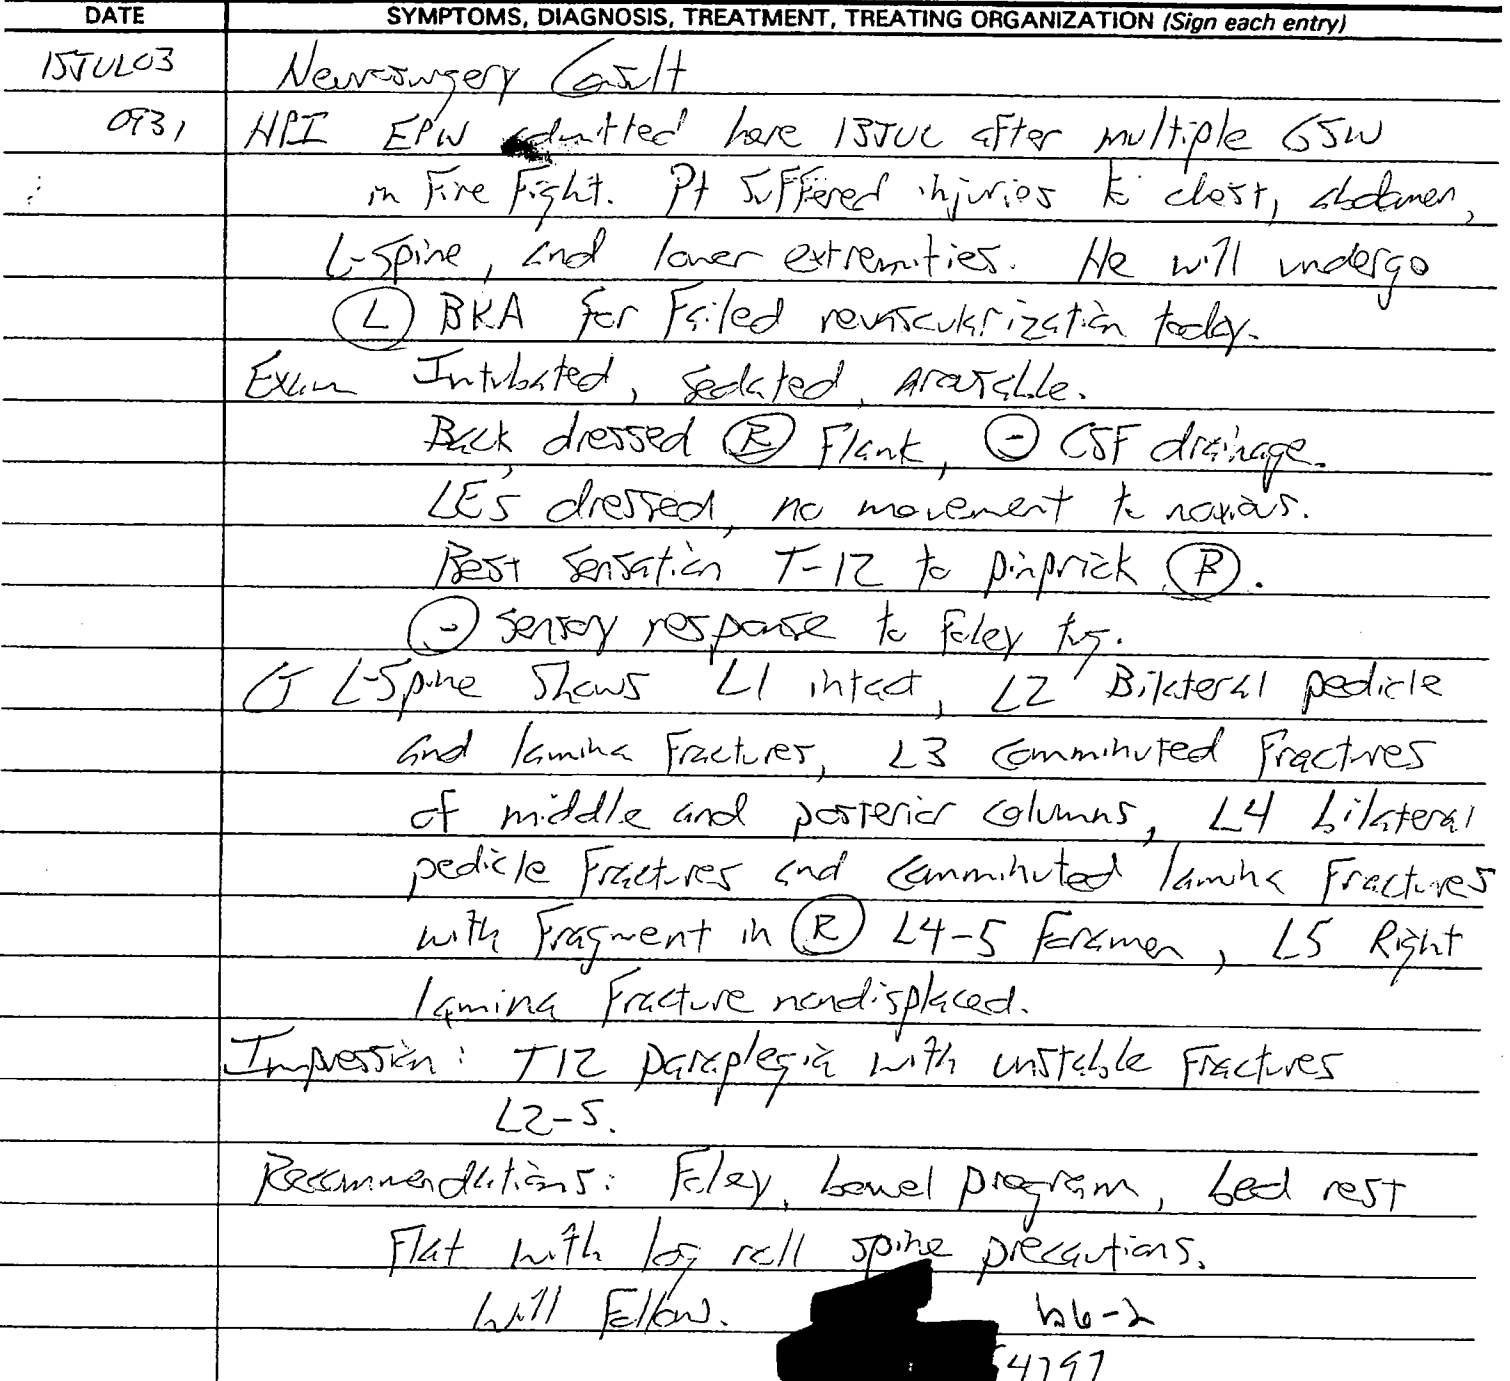 DATE SYMPTOMS, DIAGNOSIS, TREATMENT, TREATING ORGANIZATION (Sign each entry)
15JUL03 Neurosurgery Consult
0931 HPI EPW admitted here 13JUL after multiple GSW
in Fire Fight. Pt suffered injuries to chest, abdomen,
L-Spine, and lower extremities. He will undergo
(L) BKA for Failed revascularization today.
Exam Intubated, sedated, arousable.
Back dressed (R) Flank, (-) CSF drainage.
LE's dressed, no movement to noxious.
Best sensation T-12 to pinprick (B).
(-) sensory response to foley tug.
CT L-Spine Shows L1 intact, L2 Bilateral pedicle
and lamina Fractures, L3 comminuted Fractures
of middle and posterior columns, L4 bilateral
pedicle Fractures and comminuted lamina Fractures
with Fragment in (R) L4-5 foramen, L5 Right
lamina Fracture nondisplaced.
Impression: T12 paraplegia with unstable Fractures
L2-5.
Recommendations: Foley, bowel program, bed rest
Flat with log roll spine precautions.
Will Follow. b6-2
4797